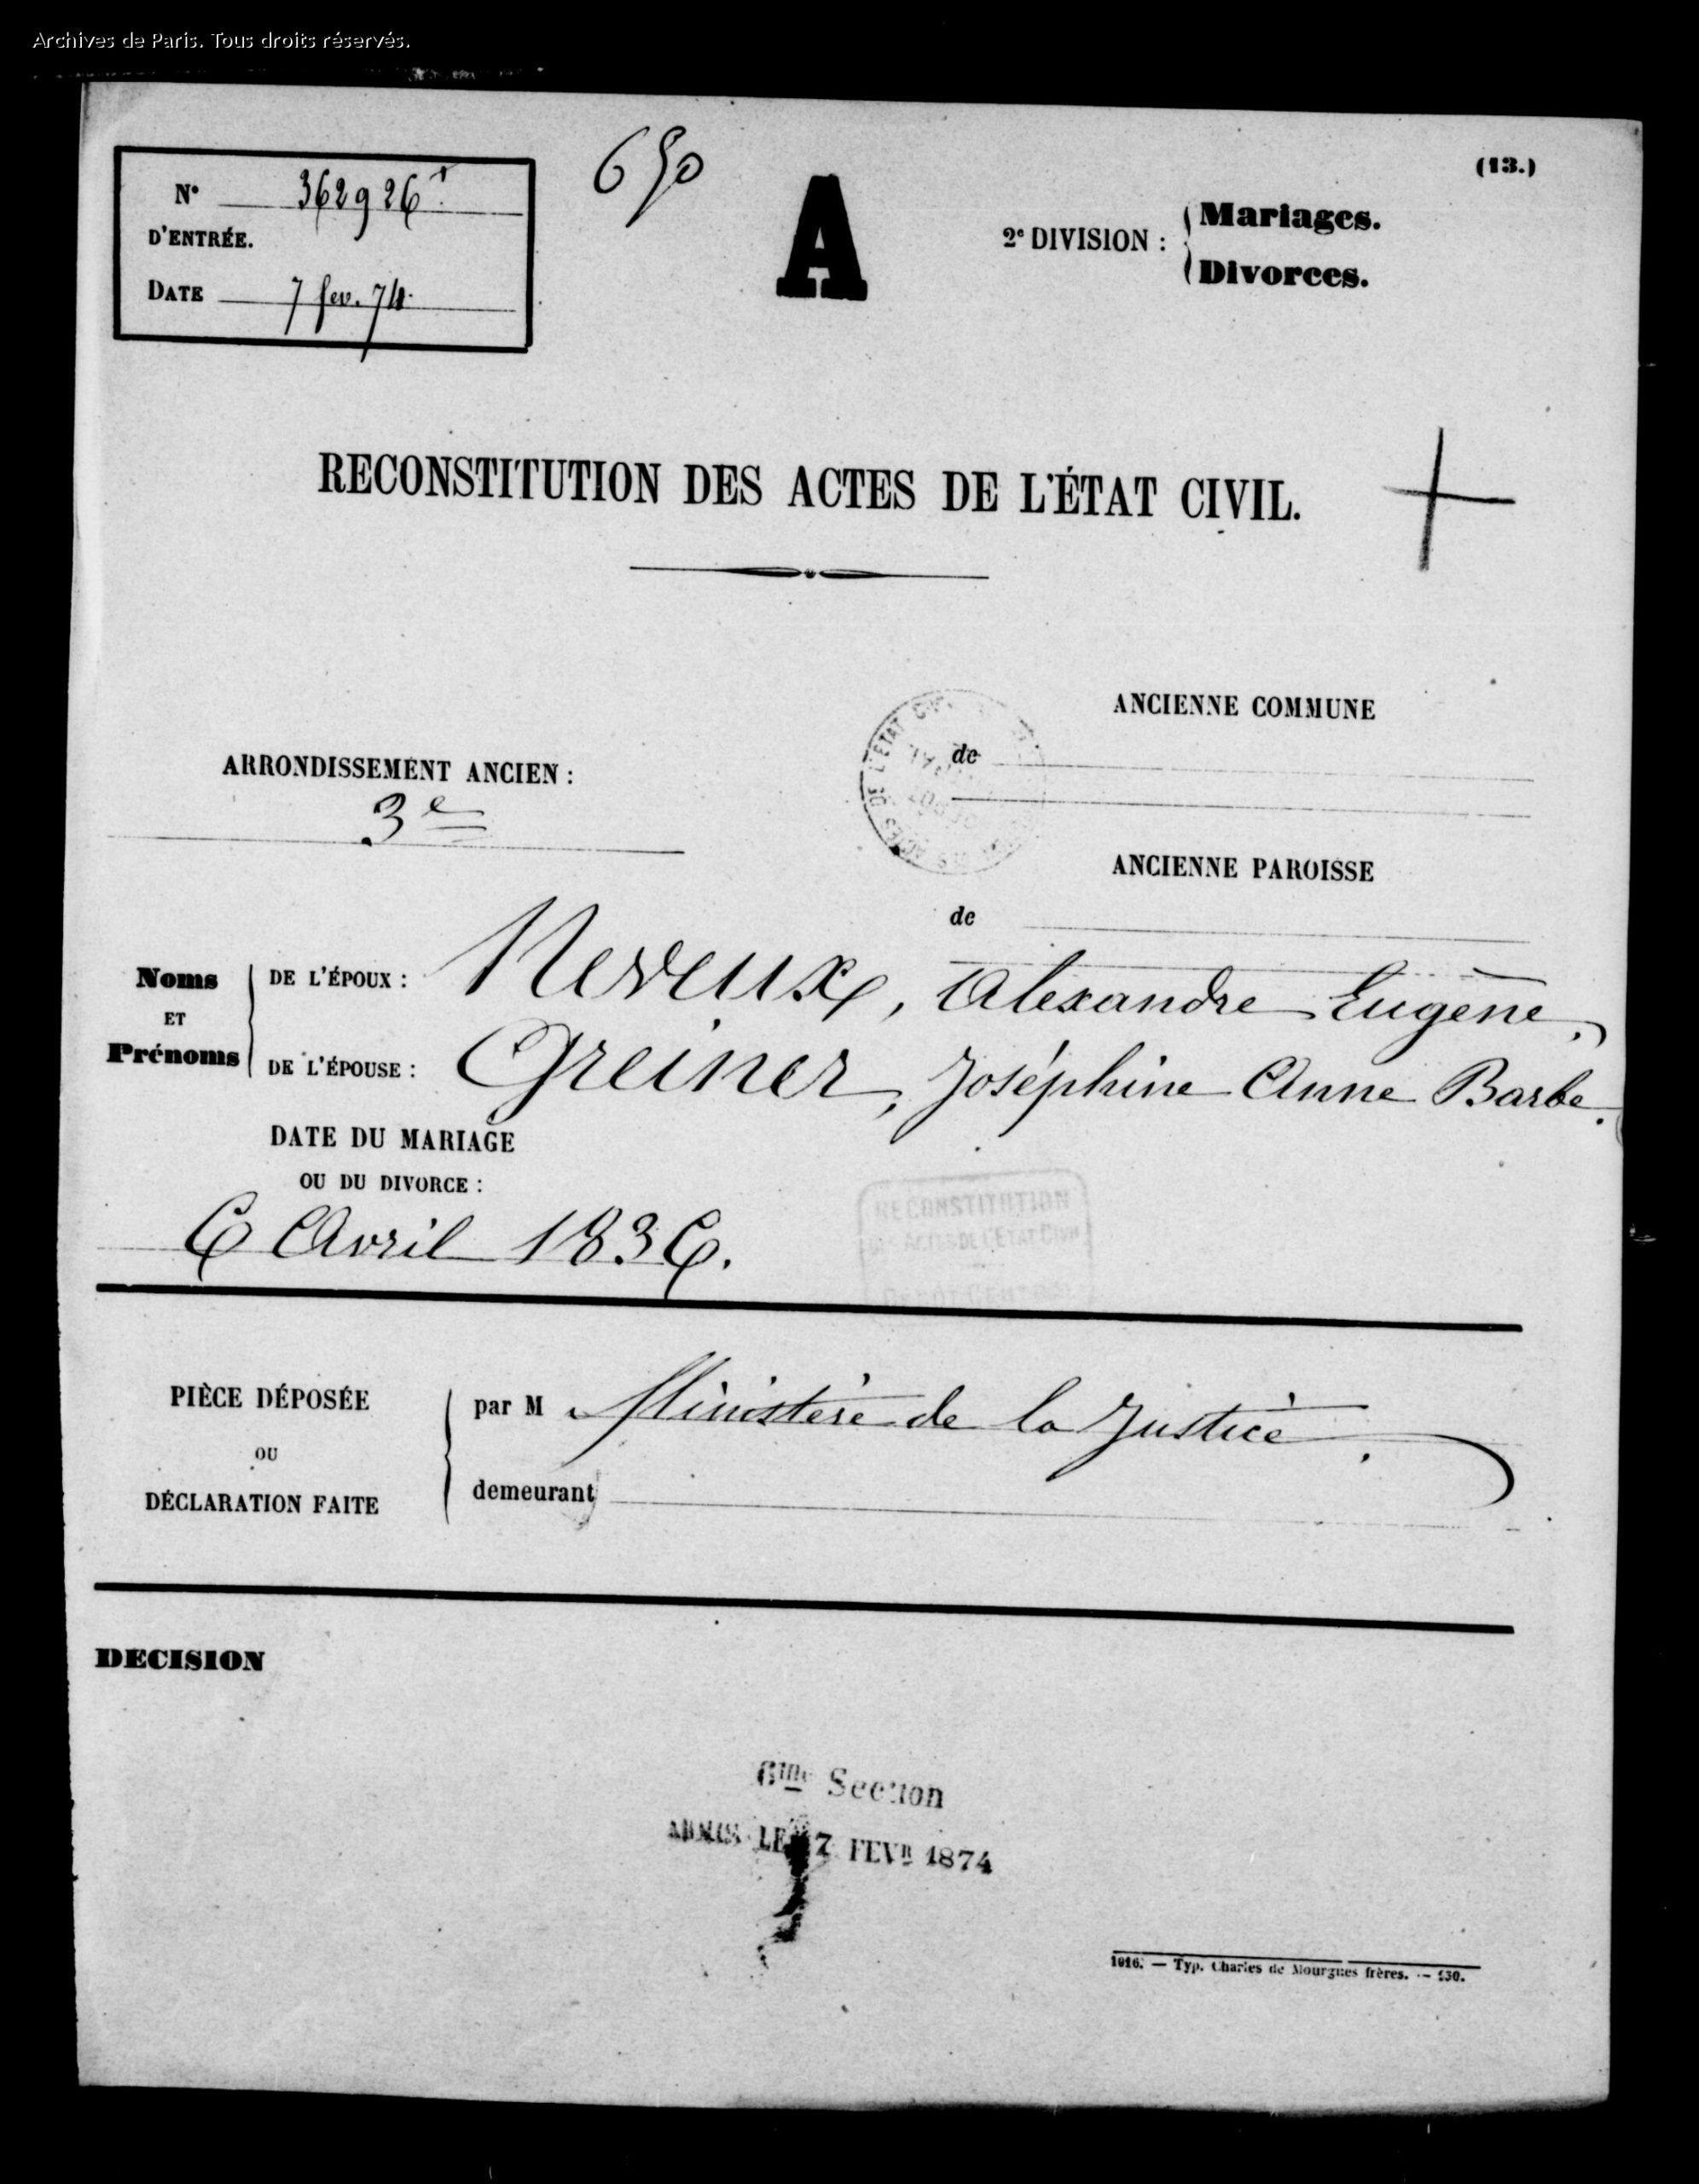 Archives de Paris. Tous droits réservés.
650
(13.)
N° 362926
D'ENTRÉE.
DATE 7 fev. 74.
A
2e DIVISION : Mariages.
Divorces.
RECONSTITUTION DES ACTES DE L'ÉTAT CIVIL.
ARRONDISSEMENT ANCIEN :
3e
ANCIENNE COMMUNE
de
ANCIENNE PAROISSE
de
Noms
ET
Prénoms
DE L'ÉPOUX : Neveux, Alexandre Eugène.
DE L'ÉPOUSE : Greiner, Joséphine Anne Barbe.
DATE DU MARIAGE
OU DU DIVORCE :
6 Avril 1836.
RECONSTITUTION
DES ACTES DE L'ETAT CIVIL
DEPOT CENTRAL
PIÈCE DÉPOSÉE
OU
DÉCLARATION FAITE
par M Ministère de la Justice.
demeurant
DECISION
6me Section
ADMIS LE 7 FEVR 1874
1016. — Typ. Charles de Mourgues frères. —